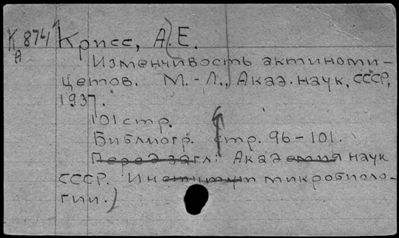 К 874 Крисс, А. Е.
А
Изменчивость актиноми-
цетов. М.-Л., Акад. наук, СССР,
1937.
101 стр.
Библиогр. стр. 96-101.
Перед загл: Академия наук
СССР. Институт микробиоло-
гии.)